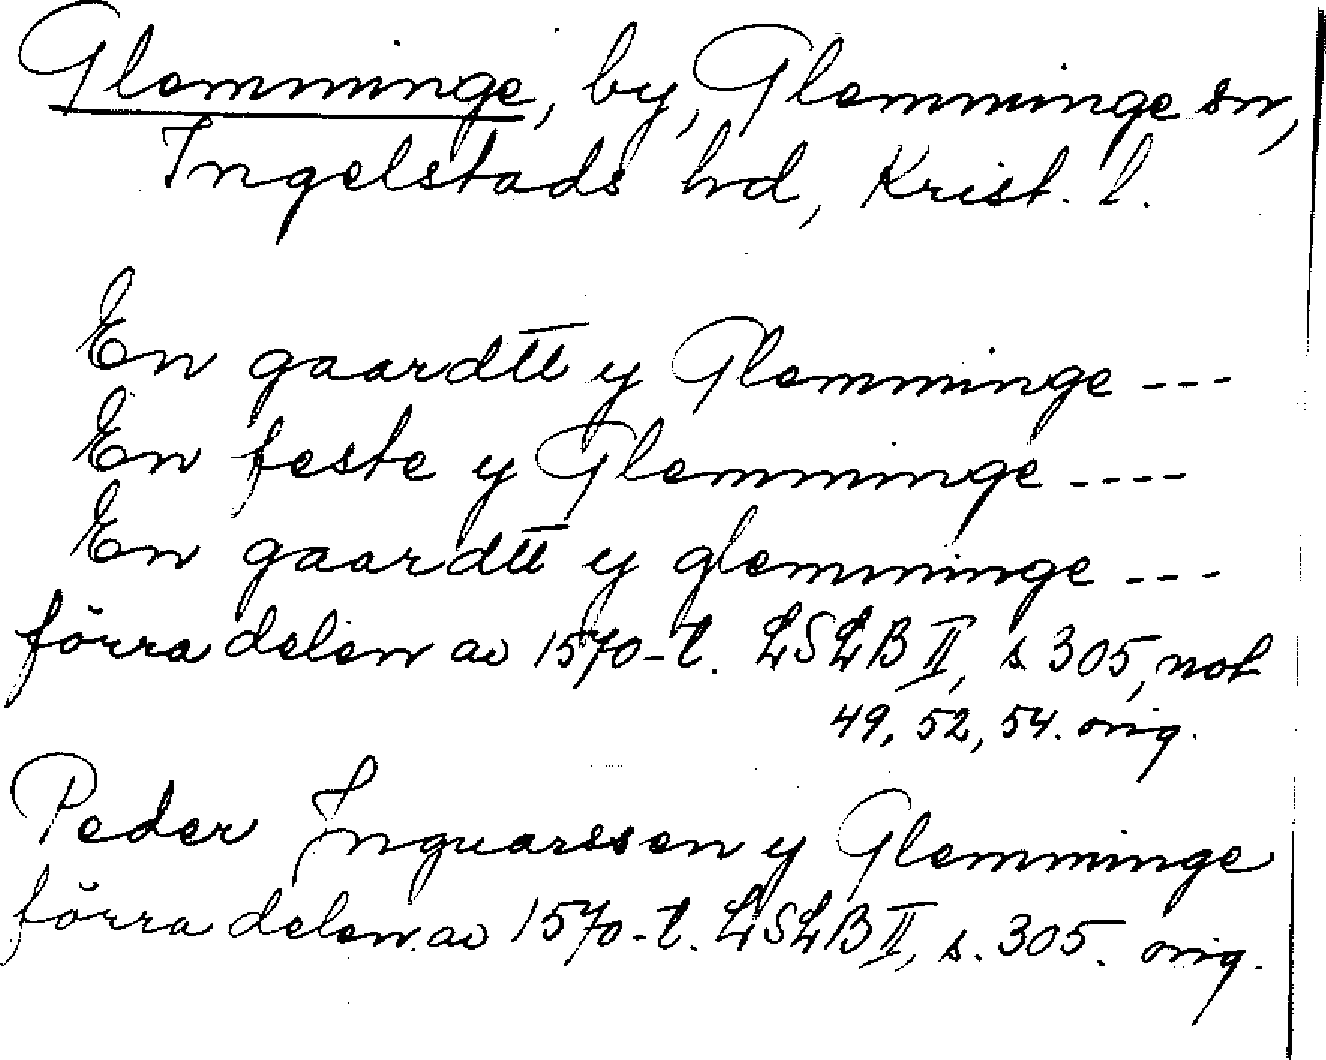 Glemminge, by, Glemminge sn,
Ingelstads hd, Krist. l.
En gaardtt y Glemminge ---
En feste y Glemminge ----
En gaardtt y glemminge ---
förra delen av 1570-t. LSLB II, s 305, not
49, 52, 54. orig.
Peder Inguarssen y Glemminge
förra delen av 1570-t. LSLB II, s. 305. orig.